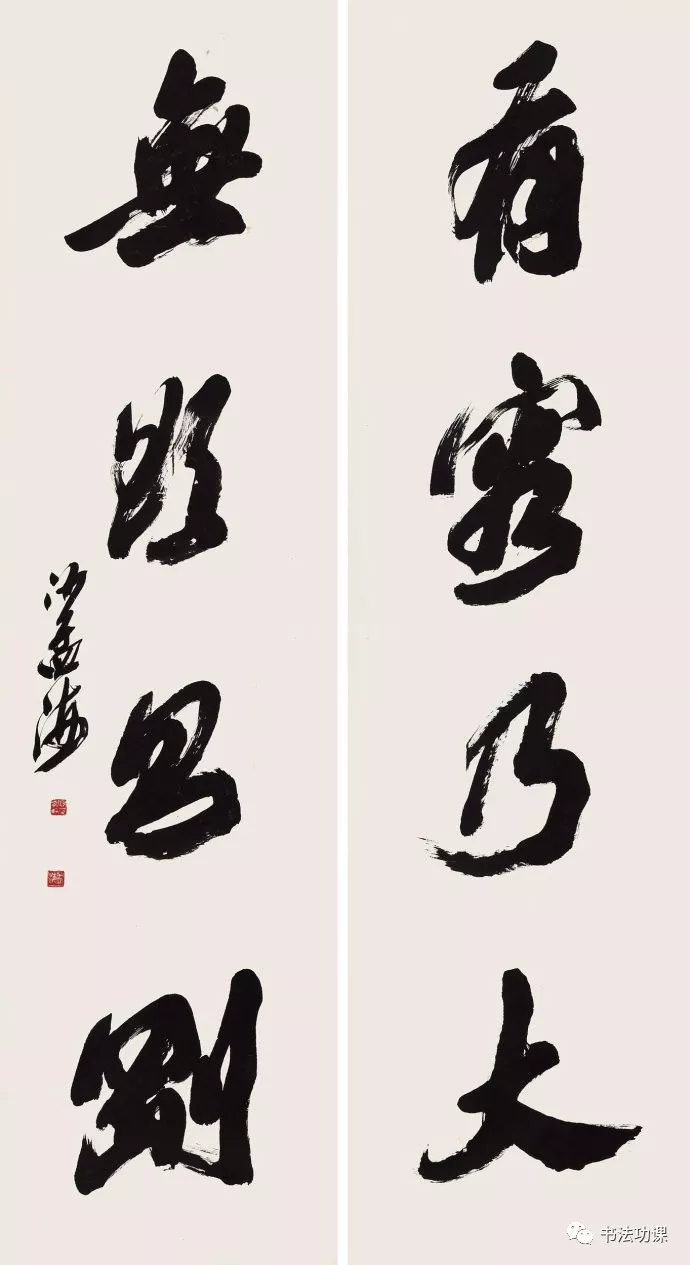 有容乃大
無欲剛
沙孟海
书法功课